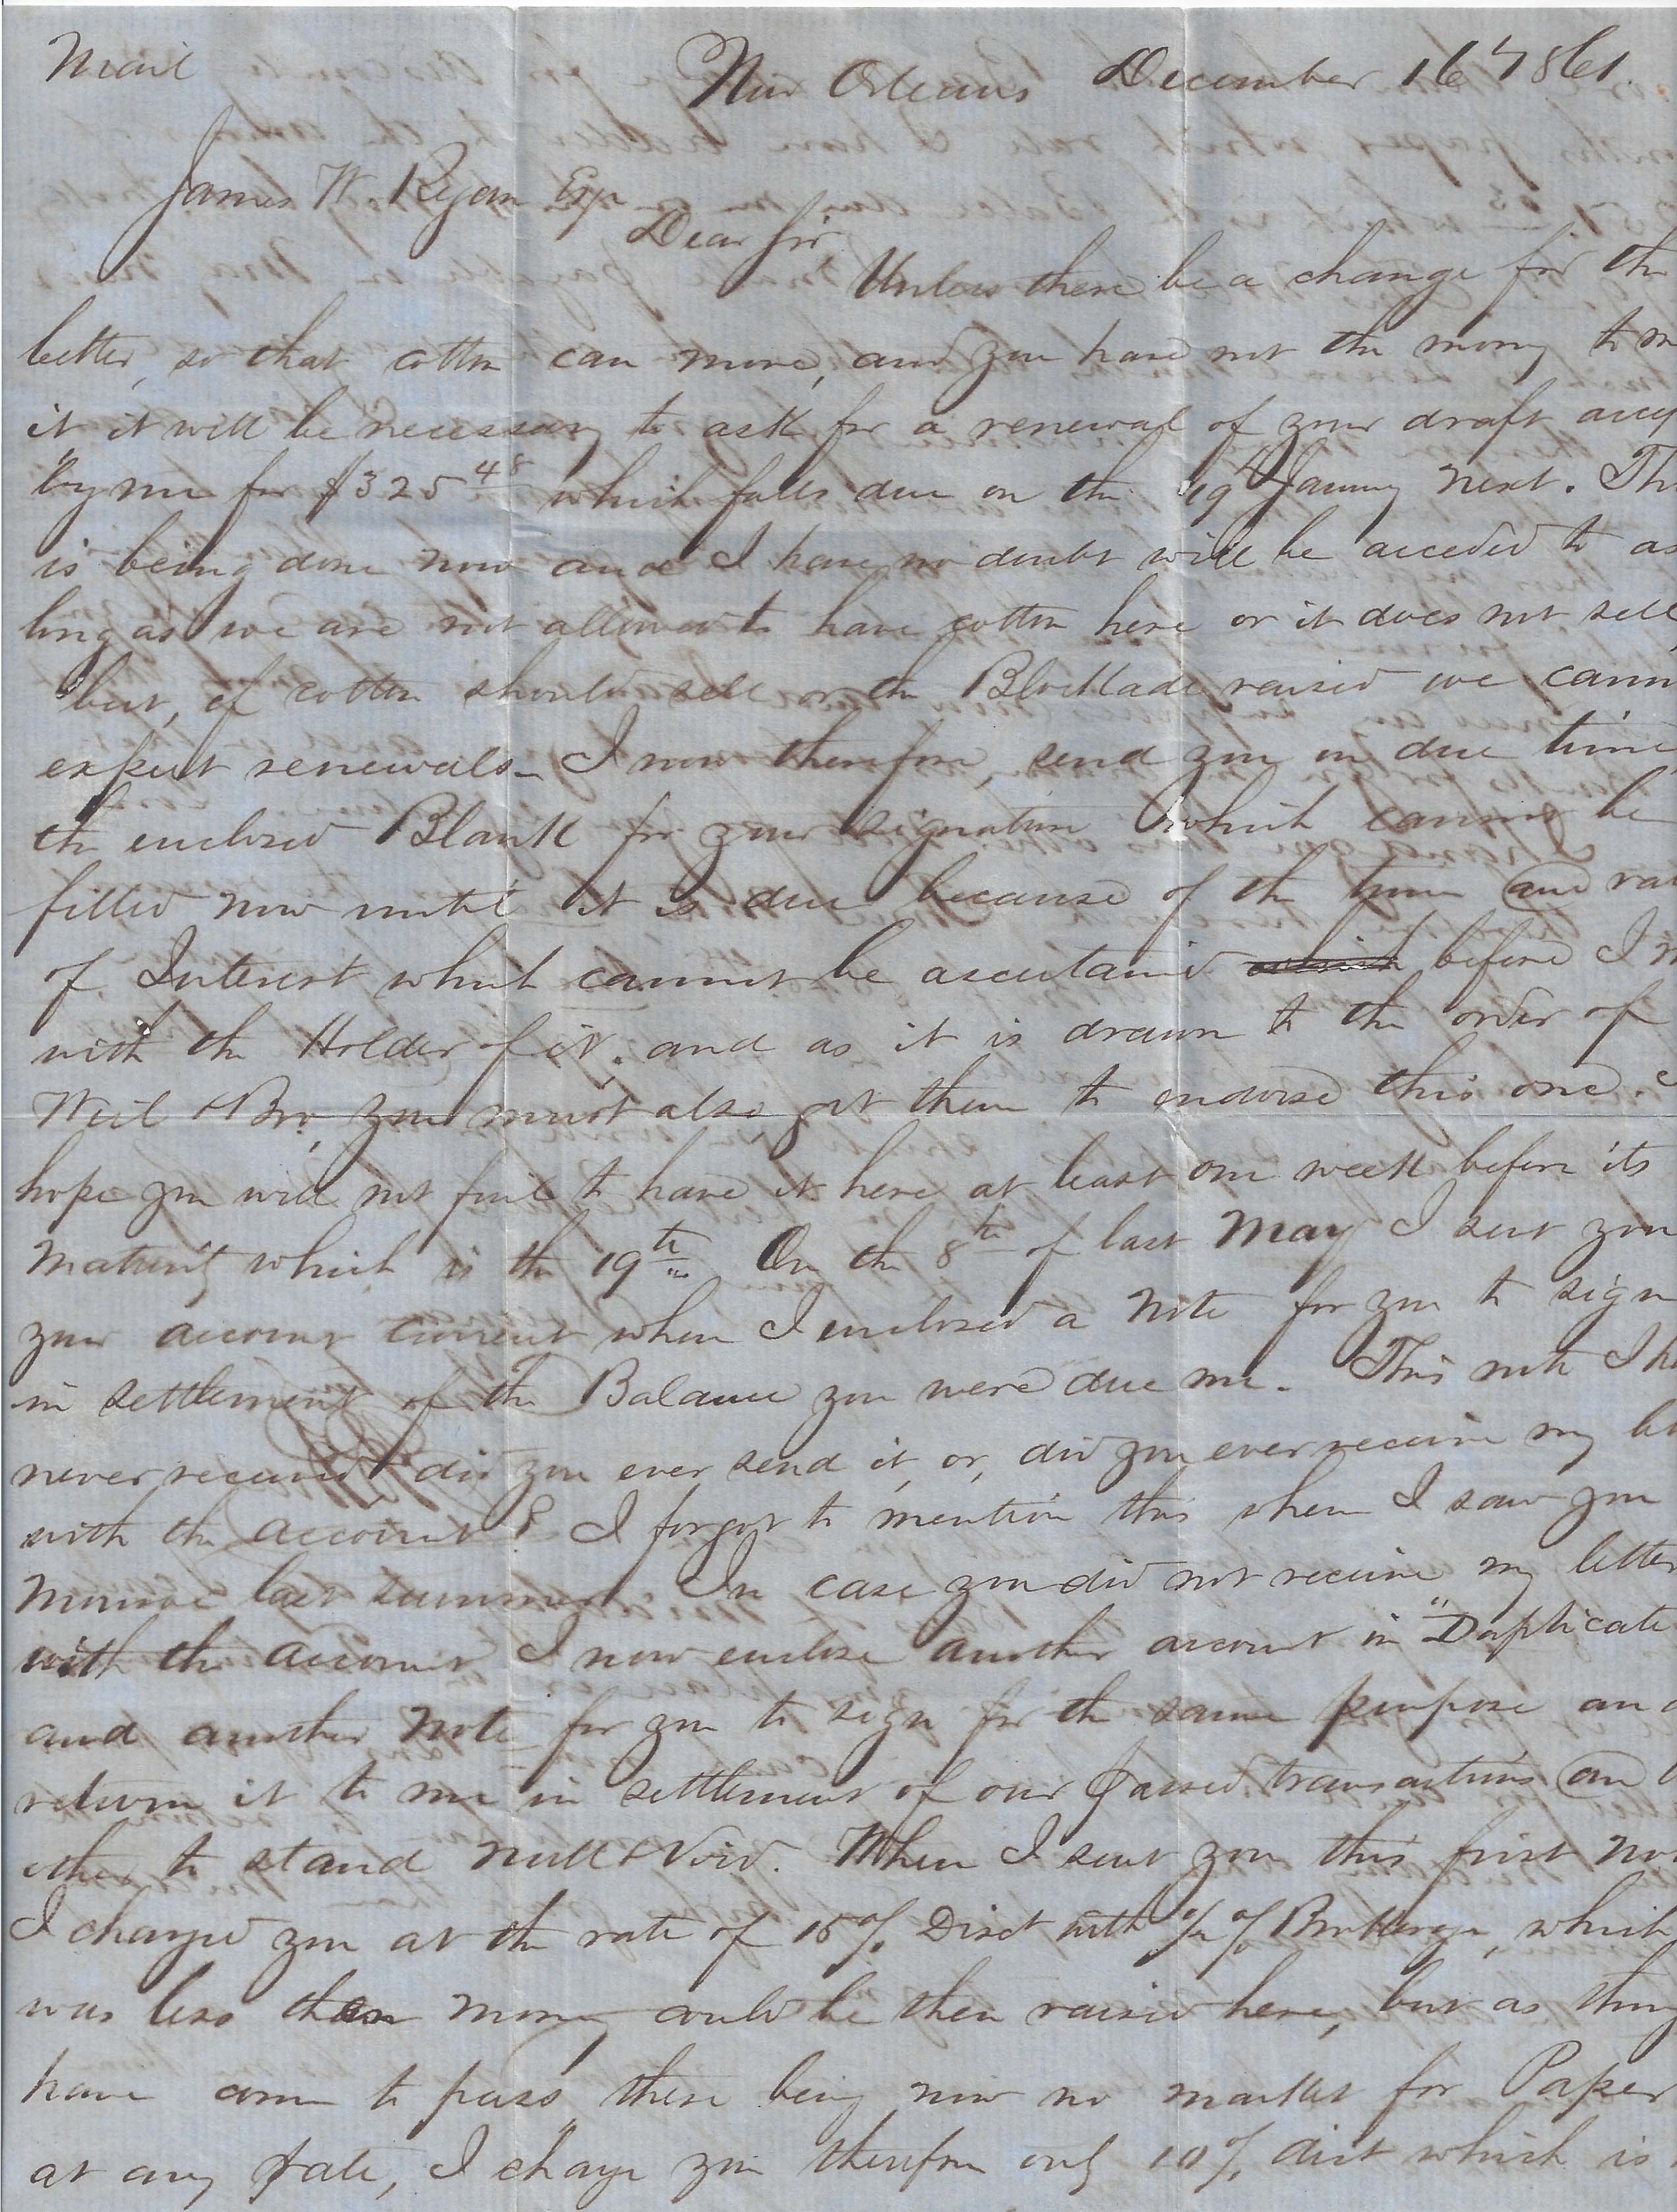 Mail
New Orleans December 16th 1861.
James W. Ryan Esqr
Dear Sir
Unless there be a change for the
better, so that cotton can move, and you have not the money to
it it will be necessary to ask for a renewal of your draft accep
by me for $325 48 which falls due on the 19th January next. Thi
is being done now and I have no doubt will be acceded to as
long as we are not allowed to have cotton here or it does not sell,
but, if cotton should sell or the Blockade raised we cann
expect renewals. I now therefore, send you in due time,
the enclosed Blank for your signature which cannot be
filled now until it is due because of the time and rat
of Interest which cannot be ascertained which before I
with the Holder of it. and as it is drawn to the order of
Weil & Bro, you must also get them to endorse this one.
hope you will not fail to have it here at least one week before its
maturity which is the 19th. On the 8th of last May I sent you
your account current when I enclosed a Note for you to sign
in settlement of the Balance you were due me. This note I ha
never received did you ever send it, or, did you ever receive my le
with the account? I forgot to mention this when I saw you
Monroe last summer. In case you did not receive my letter
with the account I now enclose another account in "Duplicate
and another Note for you to sign for the same purpose and
return it to me in settlement of our passed transactions and
other to stand null & void. When I sent you this first not
I charged you at the rate of 15% Disct with ½% Brokerage, which
was less than money could be then raised here, but as thing
have come to pass there being now no market for Paper
at any rate, I charge you therefore only 10% disct which is